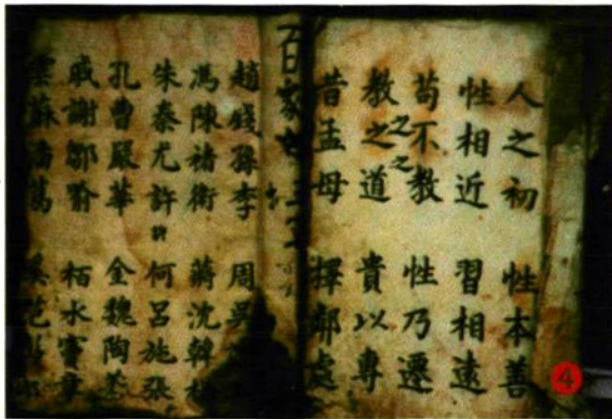 人之初 性本善
性相近 習相遠
苟不教 性乃遷
之之
教之道 貴以專
昔孟母 擇鄰處
百家姓 三
趙錢孫李 周吳
馮陳褚衛 蔣沈韓
朱秦尤許 何呂施張
孔曹嚴華 金魏陶姜
戚謝鄒喻 栢水竇章
雲蘇潘葛 奚范
4